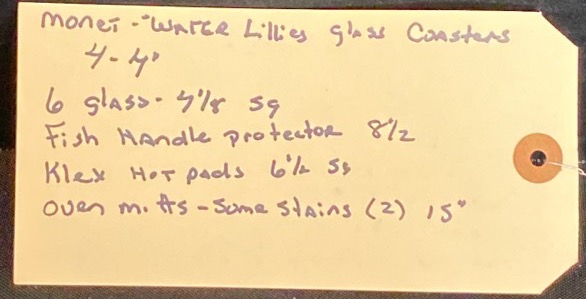 Monet - "Water Lillies glass Coasters
4 - 4"
6 glass - 4 1/8 sq
Fish Handle protector 8 1/2
Klex Hot pads 6 1/2 sq
Oven mitts - Some Stains (2) 15"